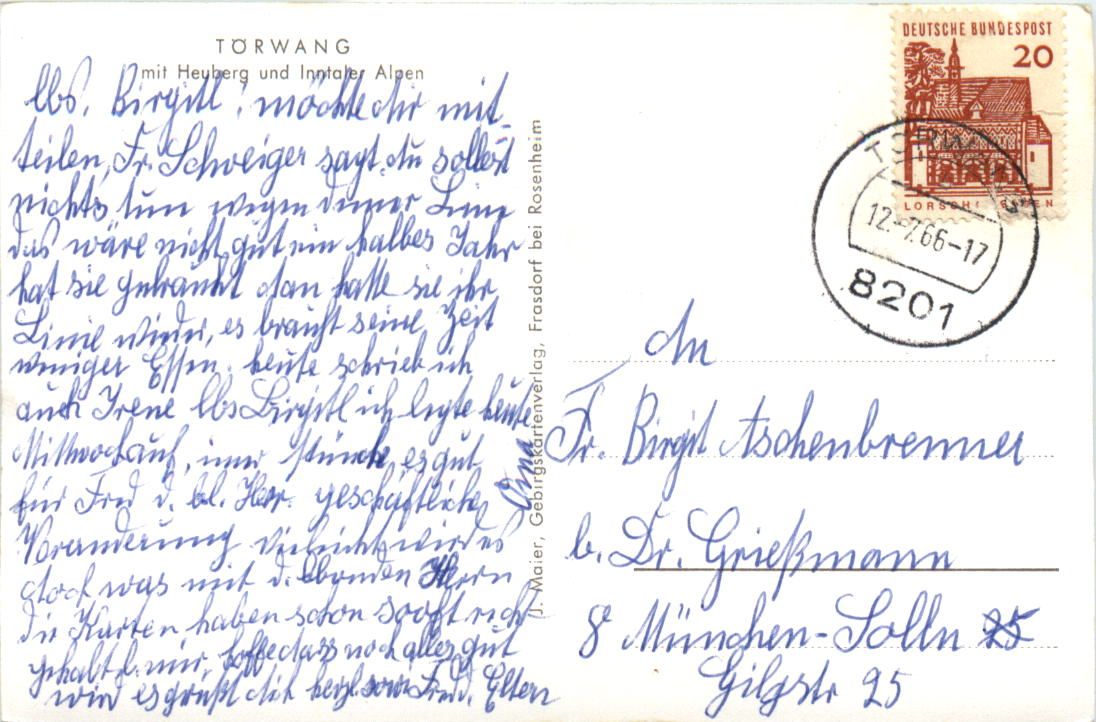 TÖRWANG
mit Heuberg und Inntaler Alpen
lbs. Birgitl, möchte dir mit-
teilen, Fr. Schweiger sagt, du sollest
nichts tun wegen deiner Linie
das wäre nicht gut ein halbes Jahr
hat sie gebraucht dan hatte sie ihr
Linie wieder, es braucht seine Zeit
weniger Essen. heute schrieb ich
auch Irene lbs Birgitl ich legte heute
Mittwoch auf, imer es gut
für Fred d. bl. Herr. geschäftliche
Veränderung vieleicht wird es
doch was mit d. Hern
die Karten haben schon so oft recht
gehabt b. mir, hoffe dass noch alles gut
wird es grüßt dich herzl. Fred. Eltern
Oma
J. Maier, Gebirgskartenverlag, Frasdorf bei Rosenheim
DEUTSCHE BUNDESPOST
20
LORSCH/HESSEN
TÖRWANG
12.-7.66-17
8201
An
Fr. Birgit Aschenbrenner
b. Dr. Grießmann
8 München-Solln 25
Gilgstr 25